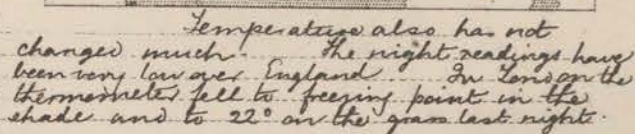 Temperature also has not
changed much. The night readings have
been very low over England. In London the
thermometer fell to freezing point in the
shade and to 22° on the grass last night.